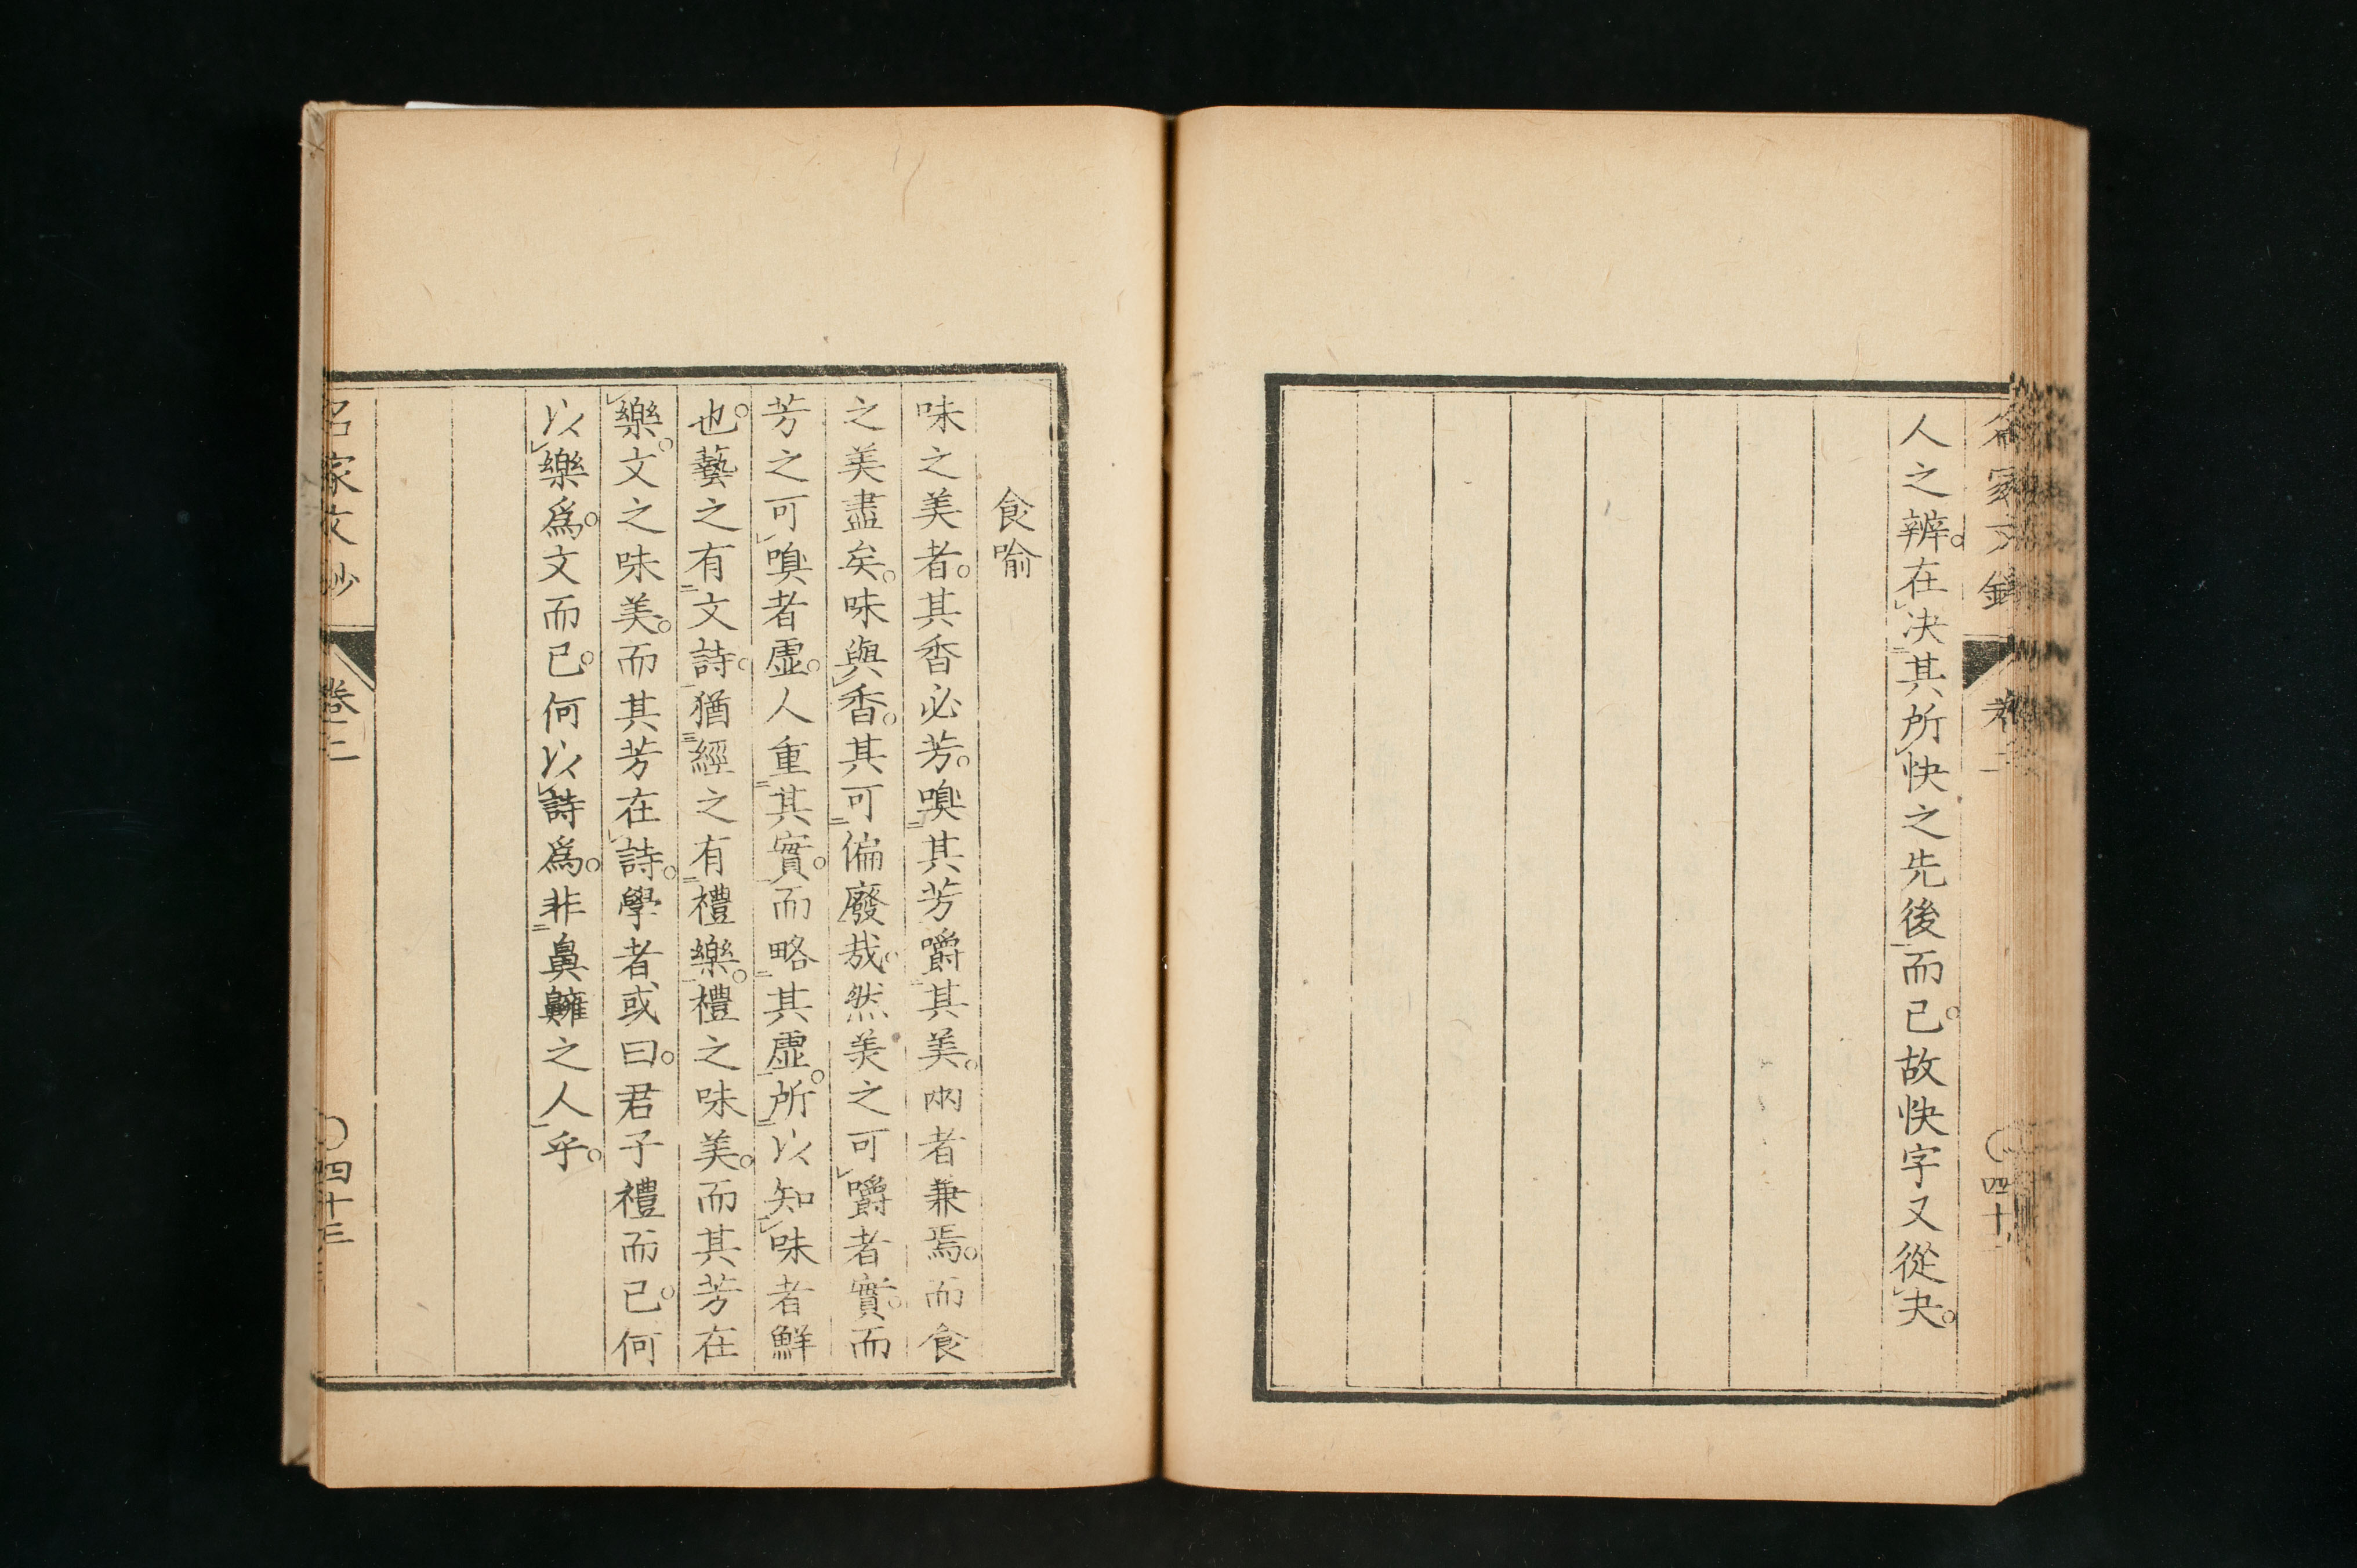 人之辨。在决其所快之先後而已。故快字又從夬。
食喻
味之美者。其香必芳。嗅其芳嚼其美。兩者兼焉。而食
之美盡矣。味與香。其可偏廢哉。然美之可嚼者實。而
芳之可嗅者虛。人重其實。而略其虛。所以知味者鮮
也。藝之有文詩。猶經之有禮樂。禮之味美。而其芳在
樂。文之味美。而其芳在詩。學者或曰。君子禮而已。何
以樂爲。文而已。何以詩爲。非鼻齆之人乎。
名家文鈔 卷二 〇四十三